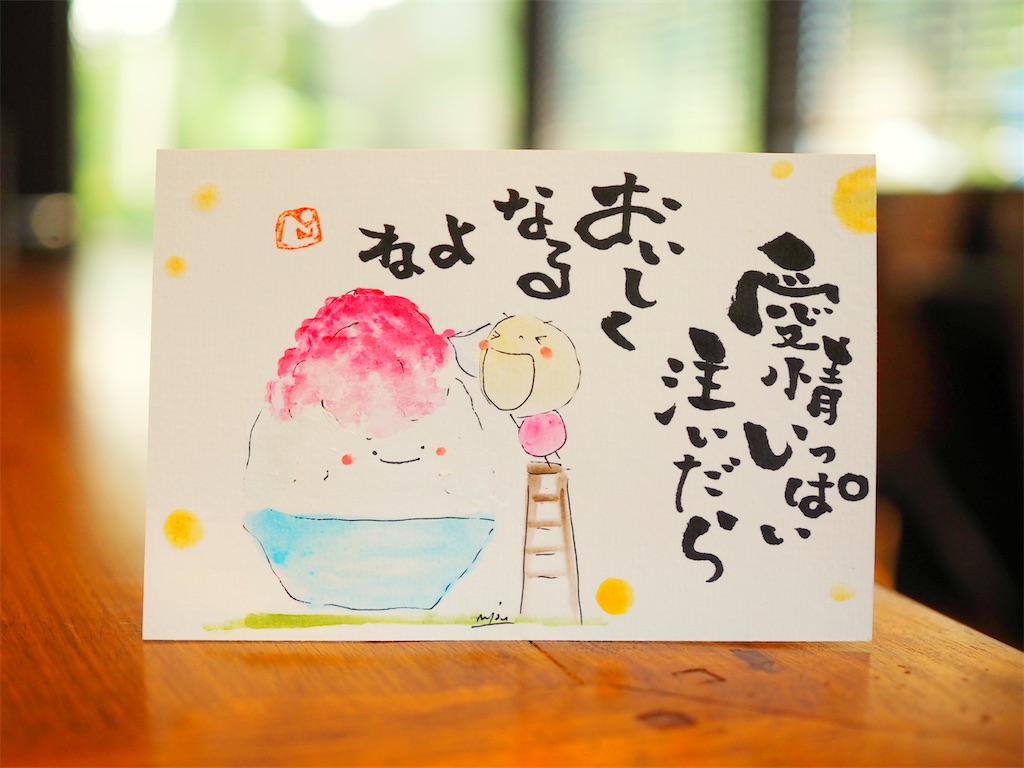 愛情いっぱい
注いだら
おいしく
なる
よ
ね